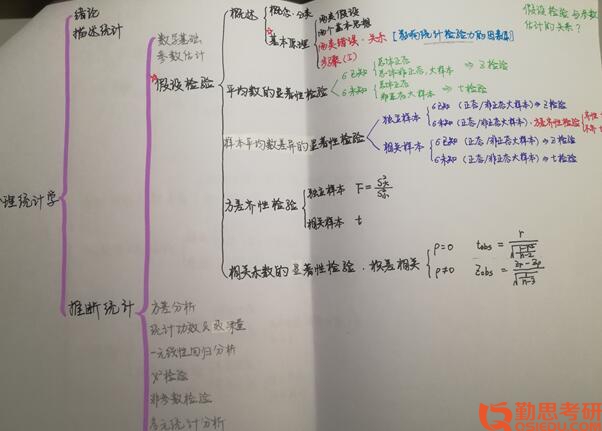 绪论
描述统计
理统计学
推断统计
数学基础
参数估计
假设检验
概述
概念·分类
基本原理
两类假设
两个基本思想
两类错误·关系 [影响统计检验力的因素]
步骤(2)
假设检验与参数
估计的关系?
平均数的显著性检验
σ已知 总体正态
总体非正态,大样本 ⇒ Z检验
σ未知 总体正态
非正态大样本 ⇒ t检验
样本平均数差异的显著性检验
独立样本
σ已知 (正态/非正态大样本) ⇒ Z检验
σ未知 (正态/非正态大样本)·方差齐性检验
相关样本
σ已知 (正态/非正态大样本) ⇒ Z检验
σ未知 (正态/非正态大样本) ⇒ t检验
方差齐性检验
独立样本 F=
相关样本 t
相关系数的显著性检验·积差相关
ρ=0 t obs = r / √(1-r²/n-2)
ρ≠0 Z obs = Zr-Zρ / √(1/n-3)
方差分析
统计功效及效果量
一元线性回归分析
χ²检验
非参数检验
多元统计分析
勤思考研
QSIEDU.COM